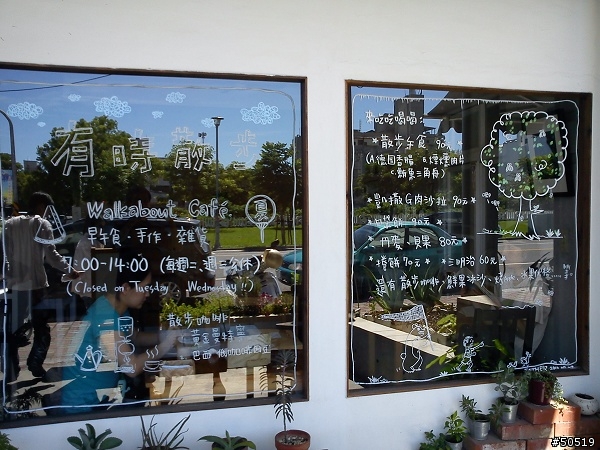 有時散步
Walkabout Café.
夏
早午食．手作．雜貨
7:00-14:00 (每週二、週三公休)
(Closed on Tuesday、Wednesday!!)
散步咖啡
黃金曼特寧
巴西
來吃吃喝喝:
*散步午食 90元*
(A德國香腸 B.燻燻肉片
C.鮪魚三角丹)
*凱撒G肉沙拉 90元*
90元*
丹麥．貝果 80元*
*鬆餅70元* *三明治60元*
還有 散步咖啡、鮮果冰沙、
#50519